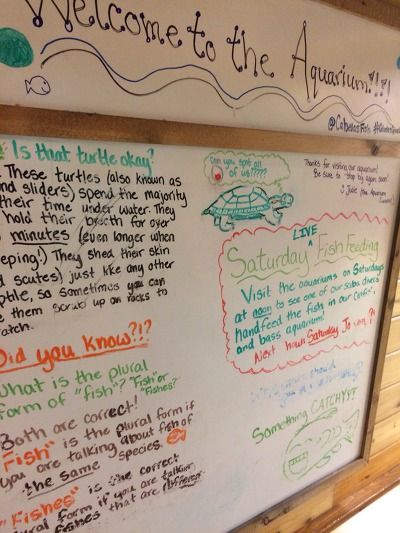 Welcome to the Aquarium!?!?!
@CabelasFish
Is that turtle okay?
These turtles (also known as
sliders) spend the majority
their time under water. They
hold their breath for over
minutes (even longer when
They shed their skin
scutes) just like any other
so sometimes you can
them scrub up on rocks to
Did you know?!?
What is the plural
form of "fish"? "Fish" or
"Fishes?"
Both are correct!
"Fish" is the plural form if
you are talking about fish of
the same species.
"Fishes" is the correct
form if you are talking
fishes that are different
Can you spot all
of us?????
Thanks for visiting our aquarium!
Be sure to stop by again soon!
LIVE
Saturday Fish Feeding
Visit the aquariums on Saturdays
at noon to see one of our scuba divers
handfeed the fish in our Catfish
and bass aquarium!
Next hours Saturday
Something CATCHY??